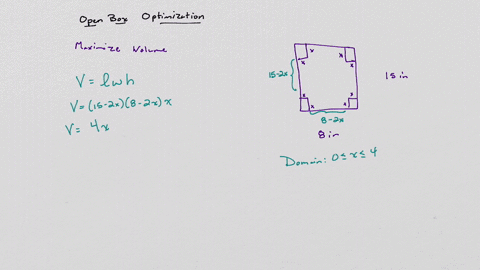 Open Box Optimization
Maximize Volume
V = lwh
V = (15-2x)(8-2x)x
V = 4x
x x
x x
15-2x
15in
x x
x x
8-2x
8in
Domain: 0 ≤ x ≤ 4